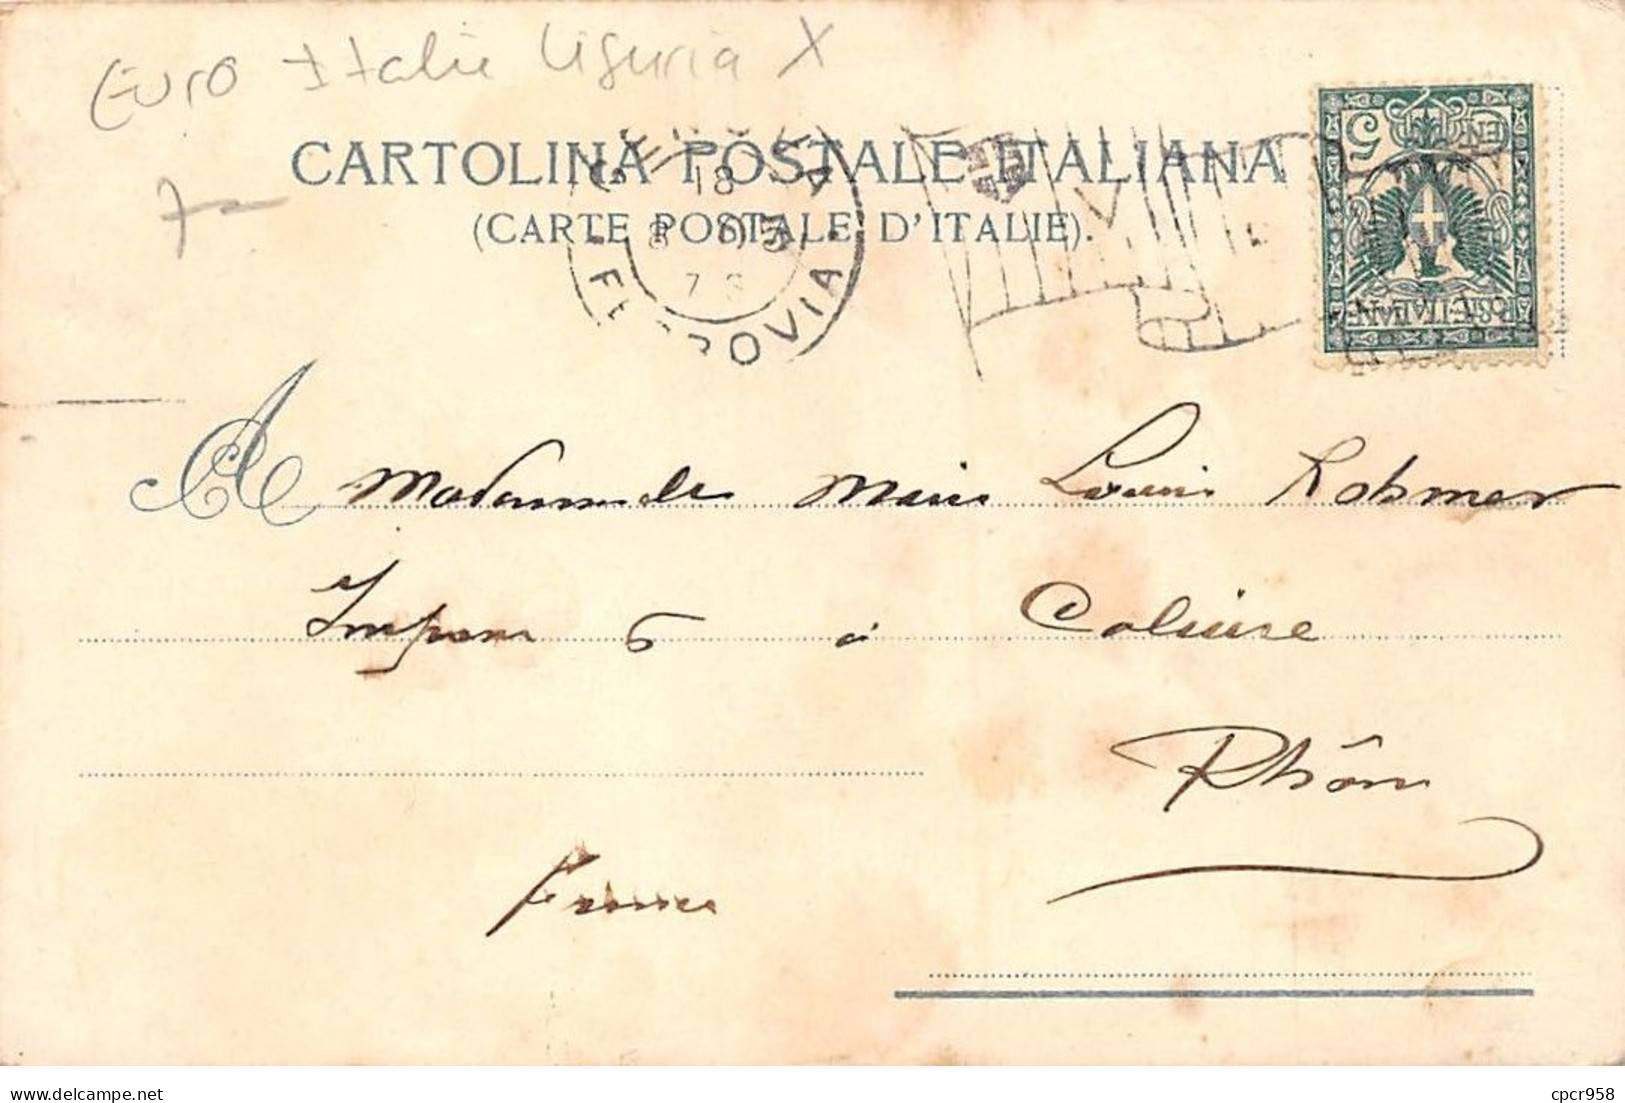 Euro Italie Liguria X
7—
CARTOLINA POSTALE ITALIANA
(CARTE POSTALE D'ITALIE).
GENOVA
18
8 05
7 S
FERROVIA
5
POSTE ITALIANE
A Mademoiselle Marie Louise Rohmer
Impasse 6 à Caluire
Rhône
France
delcampe.net
cpcr958